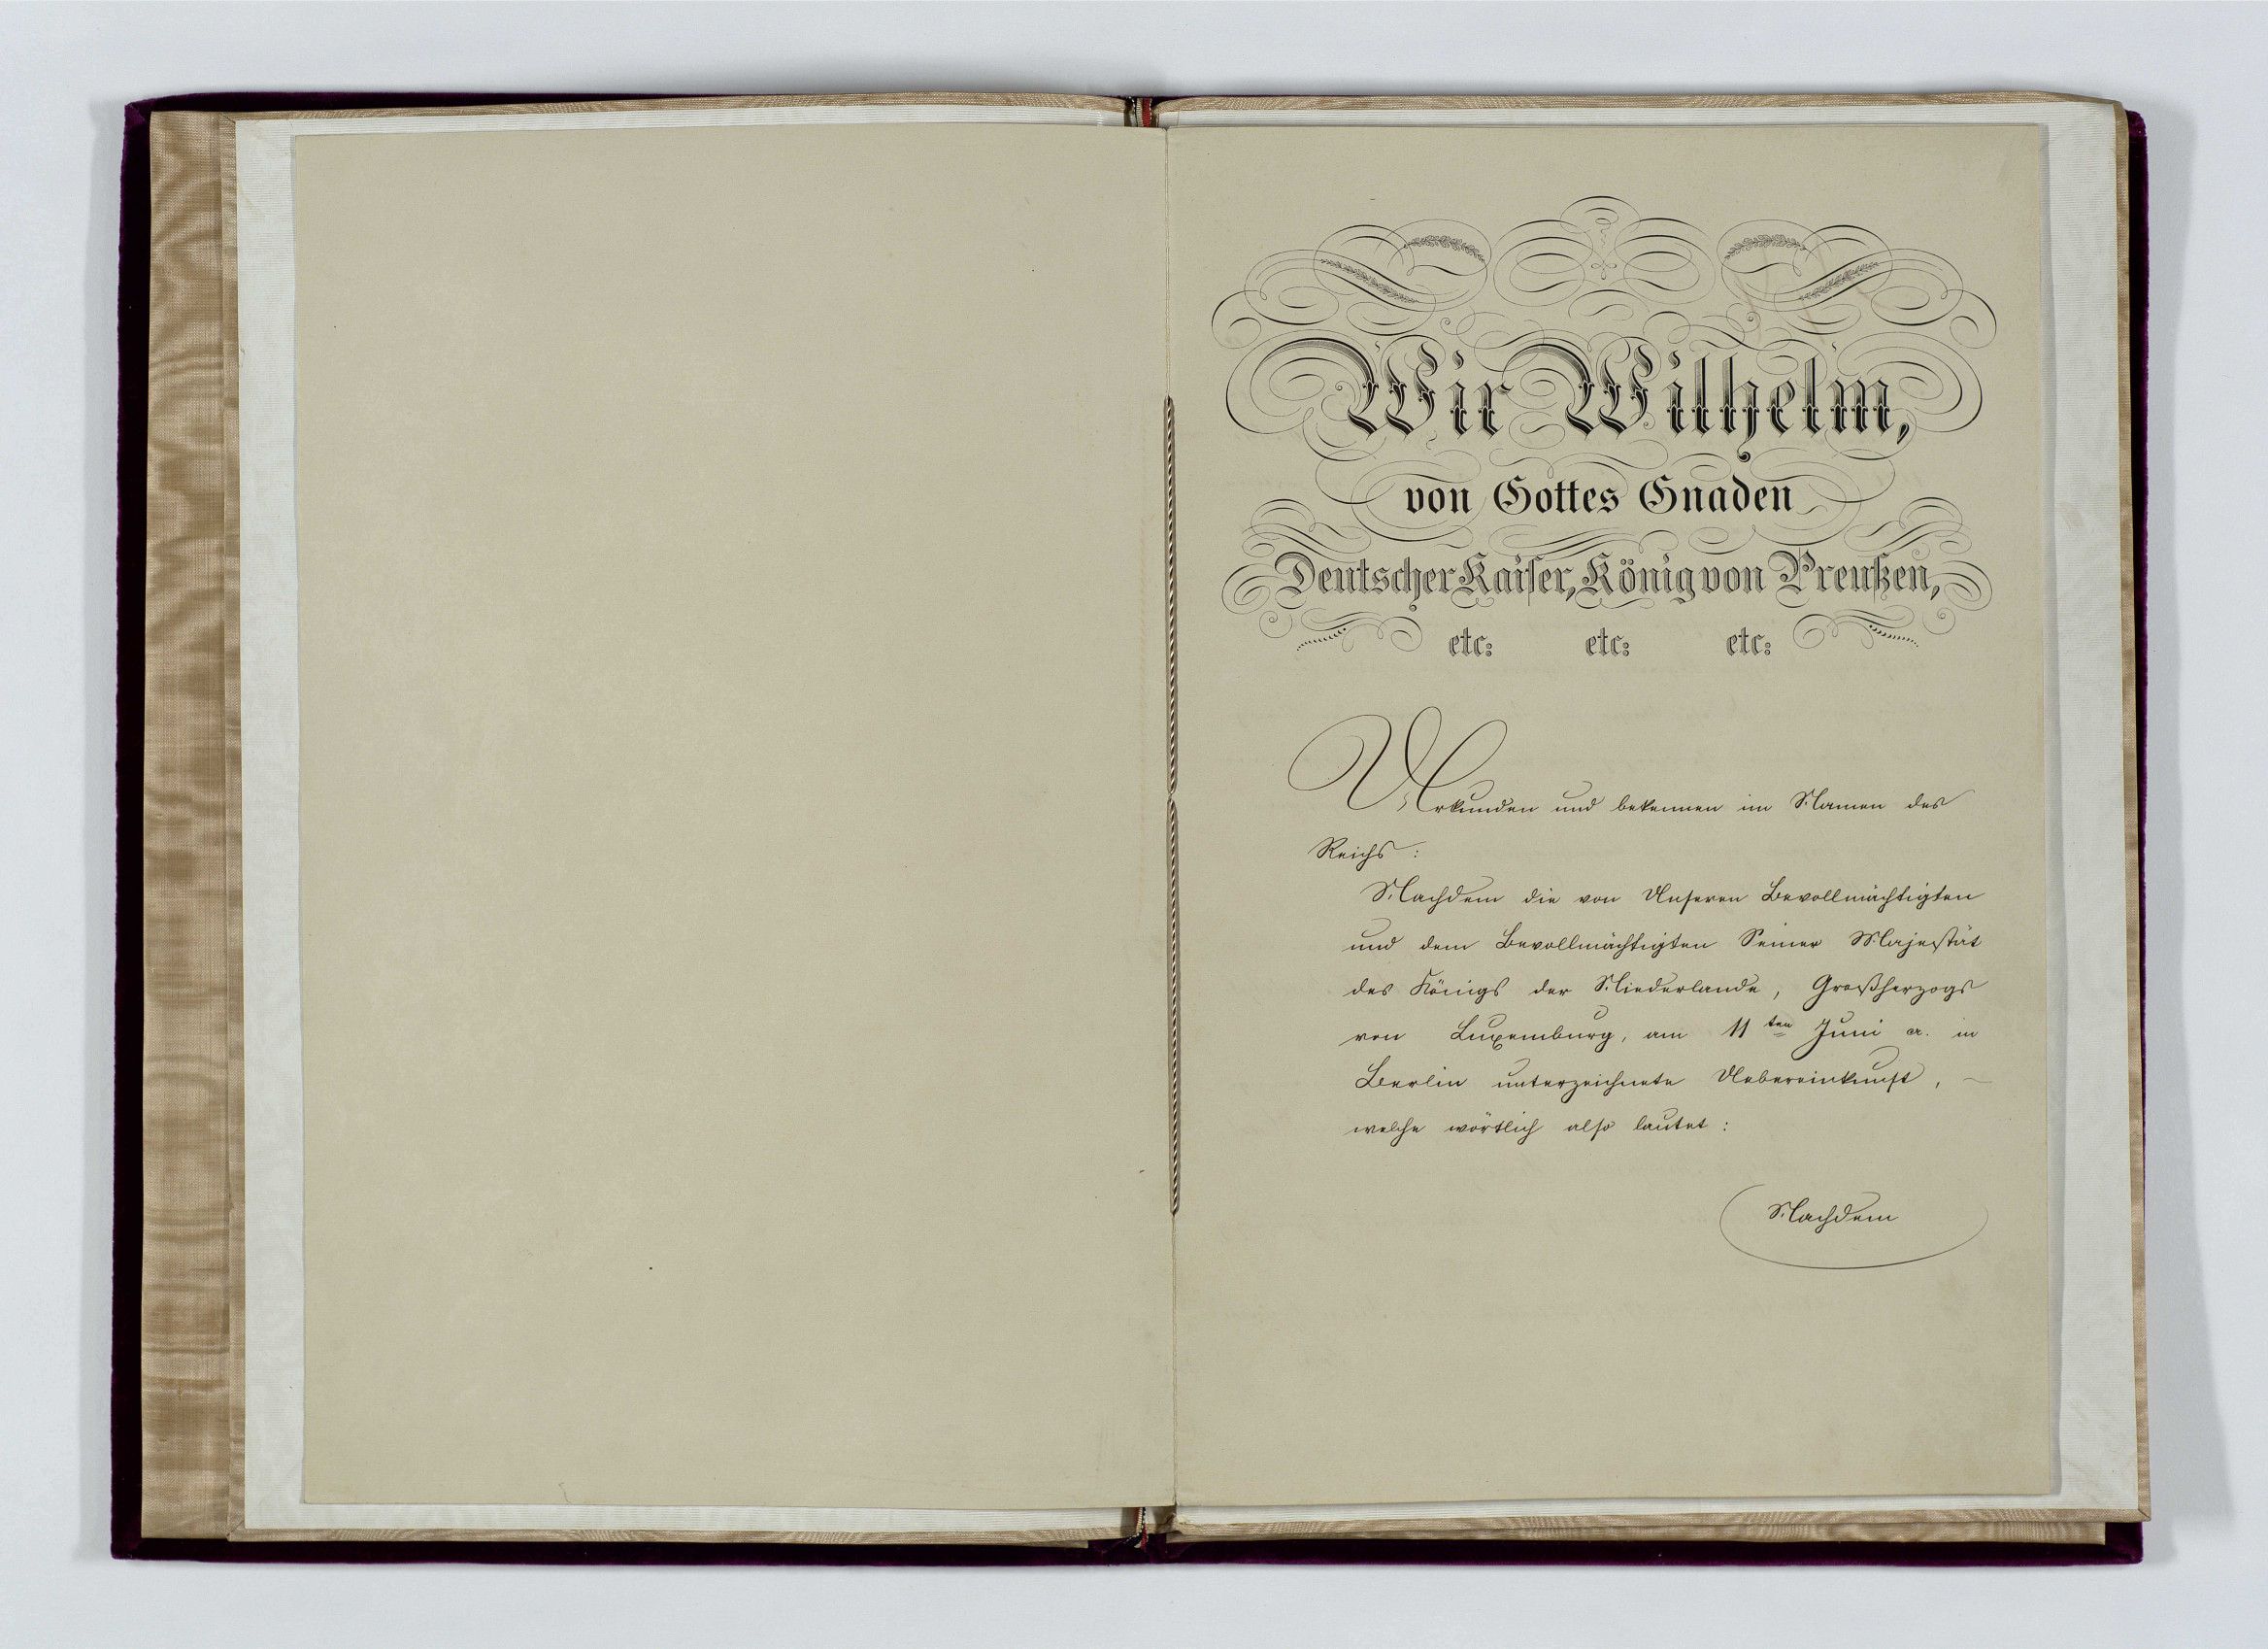 Wir Wilhelm,
von Gottes Gnaden
Deutscher Kaiser, König von Preußen,
etc: etc: etc:
Urkunden und bekennen im Namen des
Reichs:
Nachdem die von Unseren Bevollmächtigten
und dem Bevollmächtigten Seiner Majestät
des Königs der Niederlande, Großherzogs
von Luxemburg, am 11ten Juni cr. in
Berlin unterzeichnete Uebereinkunft, –
welche wörtlich also lautet:
Nachdem